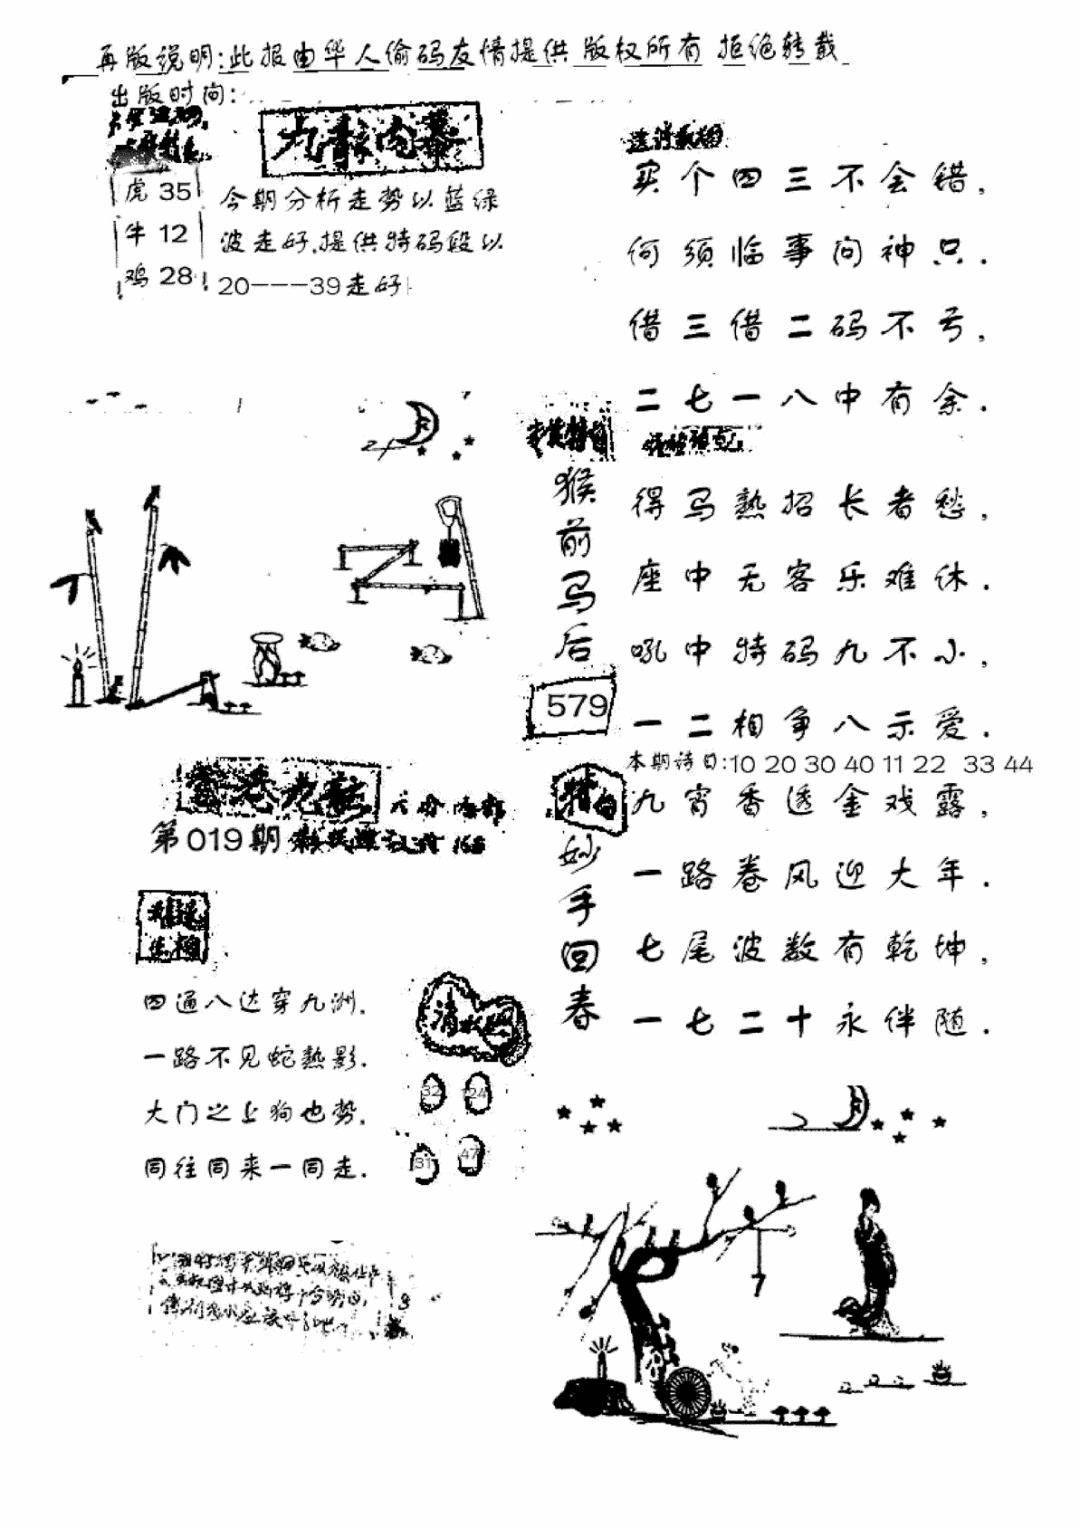 再版说明:此报由华人偷码友情提供 版权所有 拒绝转载
出版时间:
九龍内幕
虎 35
牛 12
鸡 28
今期分析走势以蓝绿
波走好.提供特码段以
20---39走好
买个四三不会错,
何须临事问神只.
借三借二码不亏,
二七一八中有余.
猴前马后
579
得马熱招长者愁,
座中无客乐难休.
吼中特码九不小,
一二相争八示爱.
本期诗日:10 20 30 40 11 22 33 44
特白
妙手回春
九宵香透金戏露,
一路卷风迎大年.
七尾波数有乾坤,
一七二十永伴随.
香港九龍
第019期
四通八达穿九洲.
一路不见蛇熱影.
大门之上狗也势.
同往同来一同走.
32 24
31 47